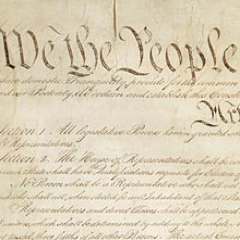 We the People
insure domestic Tranquility, provide for the common
and our Posterity, do ordain and establish this Const
Art
Section. 1. All legislative Powers herein granted shall
of Representatives.
Section. 2. The House of Representatives shall be
in each State shall have Qualifications requisite for Electors of
No Person shall be a Representative who shall not
and who shall not, when elected, be an Inhabitant of that State
Representatives and direct Taxes shall be apportioned
Numbers, which shall be determined
three fifths of all other Persons. The actual Enu